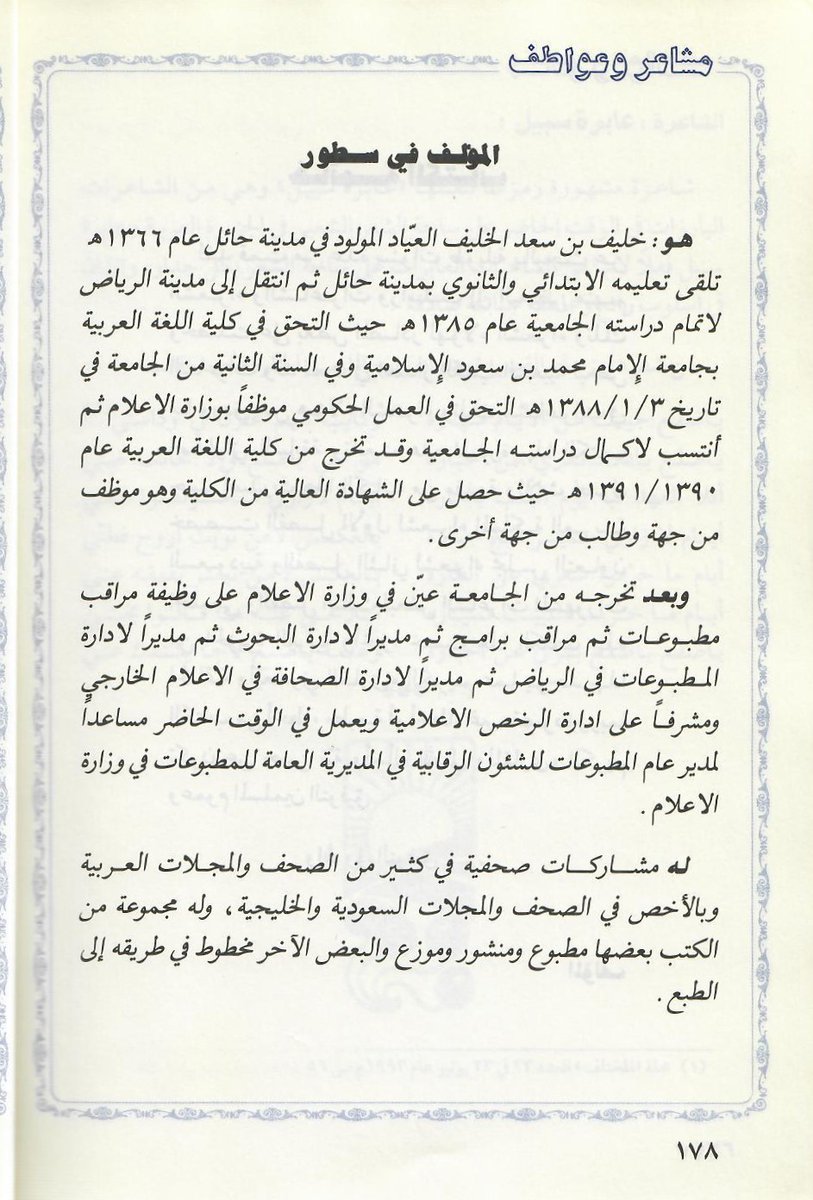 مشاعر وعواطف
المؤلف في سطور
هو : خليف بن سعد الخليف العيّاد المولود في مدينة حائل عام ١٣٦٦هـ
تلقى تعليمه الابتدائي والثانوي بمدينة حائل ثم انتقل إلى مدينة الرياض
لاتمام دراسته الجامعية عام ١٣٨٥هـ حيث التحق في كلية اللغة العربية
بجامعة الإمام محمد بن سعود الإسلامية وفي السنة الثانية من الجامعة في
تاريخ ١٣٨٨/١/٣هـ التحق في العمل الحكومي موظفاً بوزارة الاعلام ثم
أنتسب لاكمال دراسته الجامعية وقد تخرج من كلية اللغة العربية عام
١٣٩١/١٣٩٠هـ حيث حصل على الشهادة العالية من الكلية وهو موظف
من جهة وطالب من جهة أخرى .
وبعد تخرجه من الجامعة عيّن في وزارة الاعلام على وظيفة مراقب
مطبوعات ثم مراقب برامج ثم مديراً لادارة البحوث ثم مديراً لادارة
المطبوعات في الرياض ثم مديراً لادارة الصحافة في الاعلام الخارجي
ومشرفاً على ادارة الرخص الاعلامية ويعمل في الوقت الحاضر مساعداً
لمدير عام المطبوعات للشئون الرقابية في المديرية العامة للمطبوعات في وزارة
الاعلام .
له مشاركات صحفية في كثير من الصحف والمجلات العربية
وبالأخص في الصحف والمجلات السعودية والخليجية ، وله مجموعة من
الكتب بعضها مطبوع ومنشور وموزع والبعض الآخر مخطوط في طريقه إلى
الطبع .
١٧٨